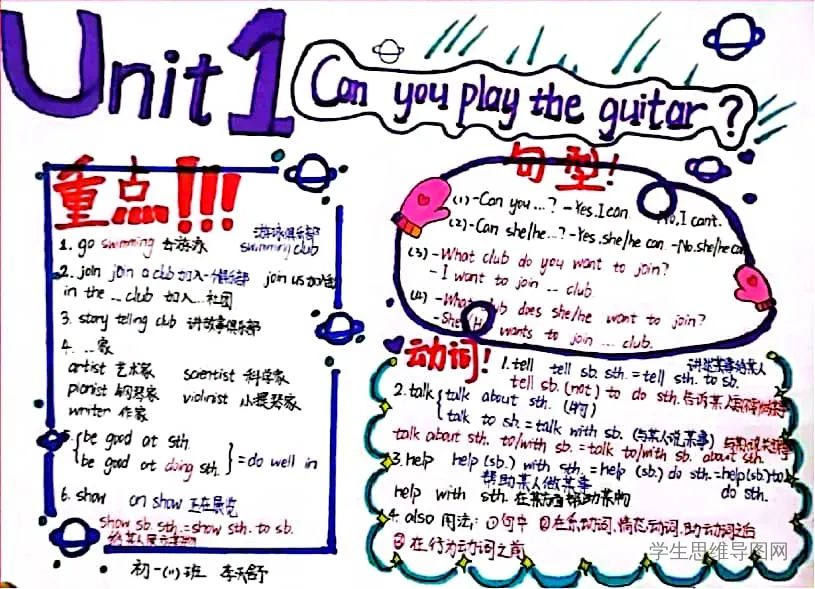 Unit 1
Can you play the guitar?
重点!!!
1. go swimming 去游泳 游泳俱乐部 swimming club
2. join join a club 加入一个俱乐部 join us 加入我们
in the ... club 加入...社团
3. story telling club 讲故事俱乐部
4. ...家
artist 艺术家 scientist 科学家
pianist 钢琴家 violinist 小提琴家
writer 作家
5. be good at sth.
be good at doing sth. =do well in
6. show on show 正在展览
show sb. sth.=show sth. to sb.
给某人展示某物
初一(11)班 李天舒
句型!
(1) -Can you...? -Yes,I can. No,I can't.
(2) -Can she/he...? -Yes,she/he can. -No.she/he can
(3) -What club do you want to join?
-I want to join ... club.
(4) -What club does she/he want to join?
-She/He wants to join ... club.
动词!
1. tell tell sb. sth.=tell sth. to sb. 讲述某事给某人
tell sb.(not) to do sth.告诉某人
2. talk talk about sth.
talk to sb.=talk with sb. (与某人说某事)
talk about sth. to/with sb.=talk to/with sb. about sth.
3. help help (sb.) with sth.=help (sb.) do sth.=help(sb.)to do sth.
帮助某人做某事
help with sth. 在某方面帮助某物
4. also 用法:①句中 ②在系动词、情态动词、助动词之后
③在行为动词之前
学生思维导图网